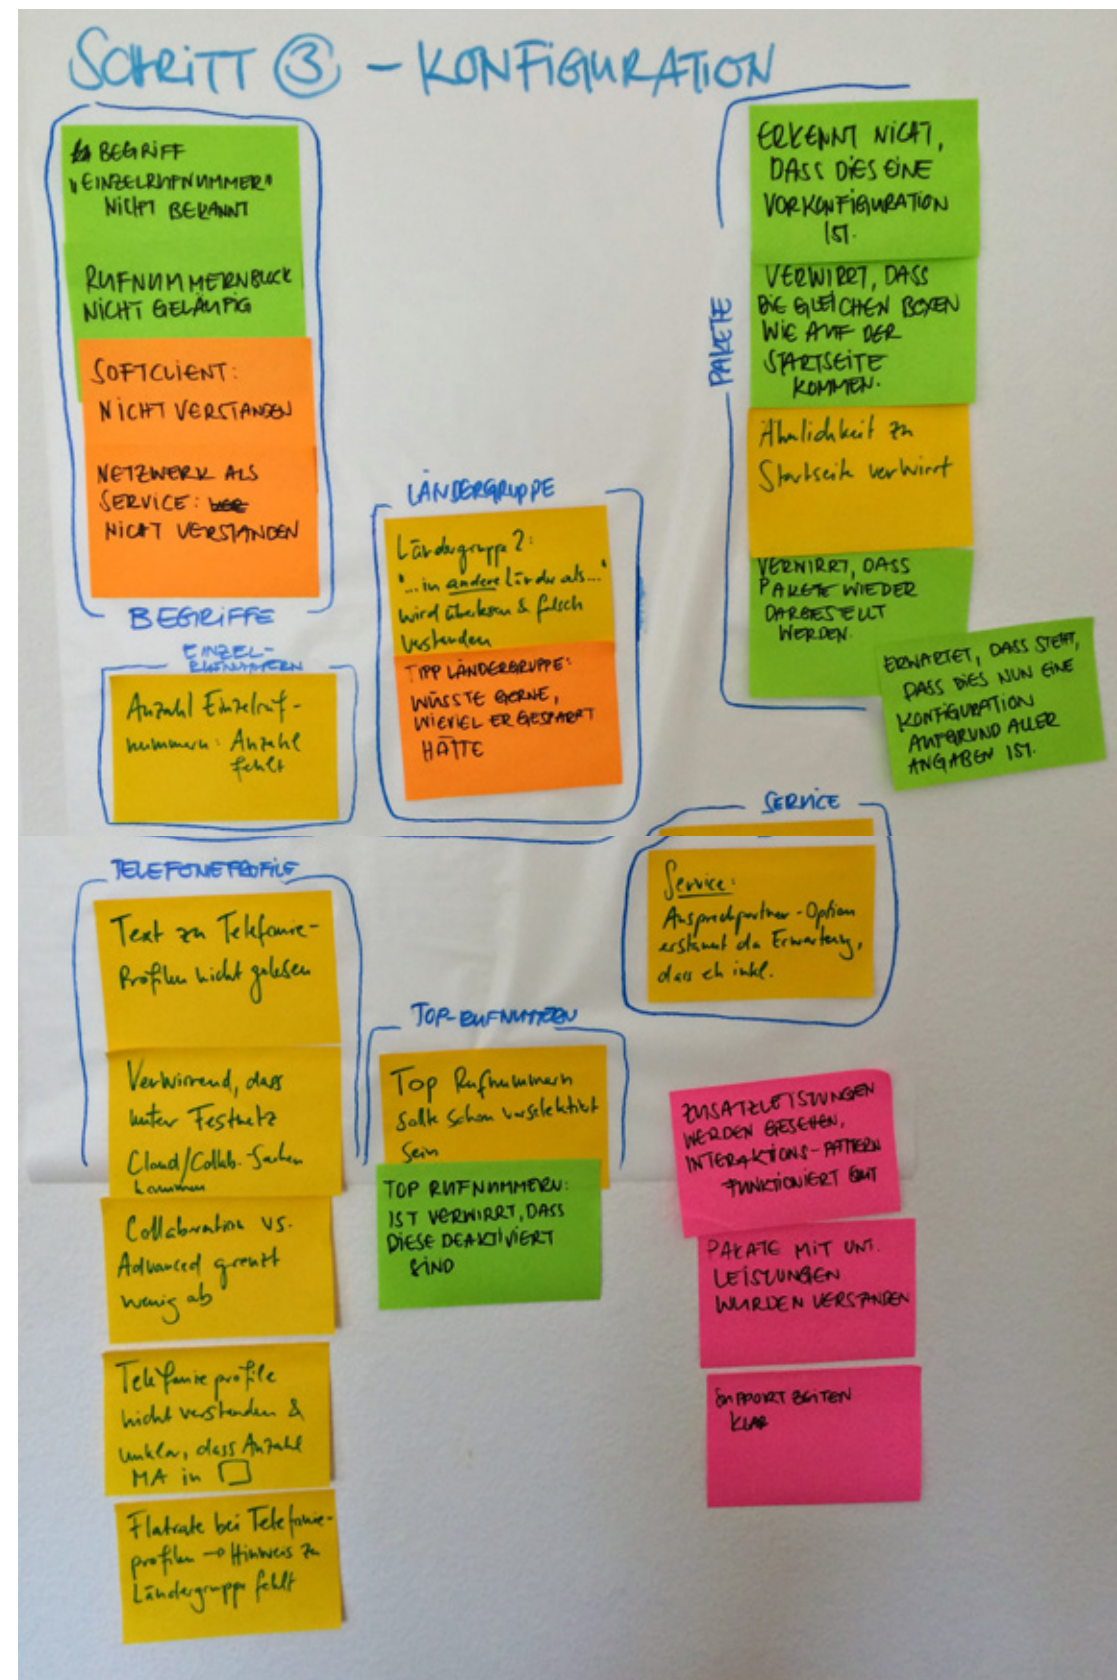 SCHRITT ③ - KONFIGURATION
BEGRIFF
"EINZELRUFNUMMER"
NICHT BEKANNT
RUFNUMMERNBLOCK
NICHT GELÄUFIG
SOFTCLIENT:
NICHT VERSTANDEN
NETZWERK ALS
SERVICE:
NICHT VERSTANDEN
BEGRIFFE
EINZEL-
RUFNUMMERN
Anzahl Einzelruf-
nummern: Anzahl
fehlt
LÄNDERGRUPPE
Ländergruppe 2:
"...in andere Länder als..."
wird überlesen & falsch
verstanden
TIPP LÄNDERGRUPPE:
WÜSSTE GERNE,
WIEVIEL ER GESPART
HÄTTE
PAKETE
ERKENNT NICHT,
DASS DIES EINE
VORKONFIGURATION
IST.
VERWIRRT, DASS
DIE GLEICHEN BOXEN
WIE AUF DER
STARTSEITE
KOMMEN.
Ähnlichkeit zu
Startseite verwirrt
VERWIRRT, DASS
PAKETE WIEDER
DARGESTELLT
WERDEN.
ERWARTET, DASS STEHT,
DASS DIES NUN EINE
KONFIGURATION
AUFGRUND ALLER
ANGABEN IST.
SERVICE
Service:
Ansprechpartner-Option
erstaunt da Erwartung,
dass eh inkl.
TELEFONIEPROFILE
Text zu Telefonie-
Profilen nicht gelesen
Verwirrend, dass
unter Festnetz
Cloud/Collab.-Sachen
kommen
Collaboration vs.
Advanced grenzt
wenig ab
Telefonieprofile
nicht verstanden &
unklar, dass Anzahl
MA in
Flatrate bei Telefonie-
profilen → Hinweis zu
Ländergruppe fehlt
TOP-RUFNUMMERN
Top Rufnummern
sollte schon vorselektiert
sein
TOP RUFNUMMERN:
IST VERWIRRT, DASS
DIESE DEAKTIVIERT
SIND
ZUSATZLEISTUNGEN
WERDEN GESEHEN,
INTERAKTIONS-PATTERN
FUNKTIONIERT GUT
PAKATE MIT UNT.
LEISTUNGEN
WURDEN VERSTANDEN
SUPPORT ZEITEN
KLAR